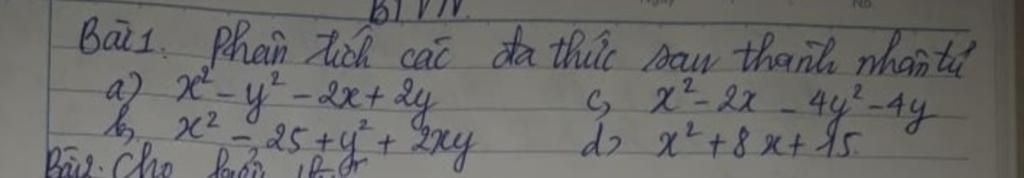 BTVN.
Bài 1. Phân tích các đa thức sau thành nhân tử
a) x² - y² - 2x + 2y
c, x² - 2x - 4y² - 4y
b, x² - 25 + y² + 2xy
d) x² + 8x + 15.
Bài 2. Cho